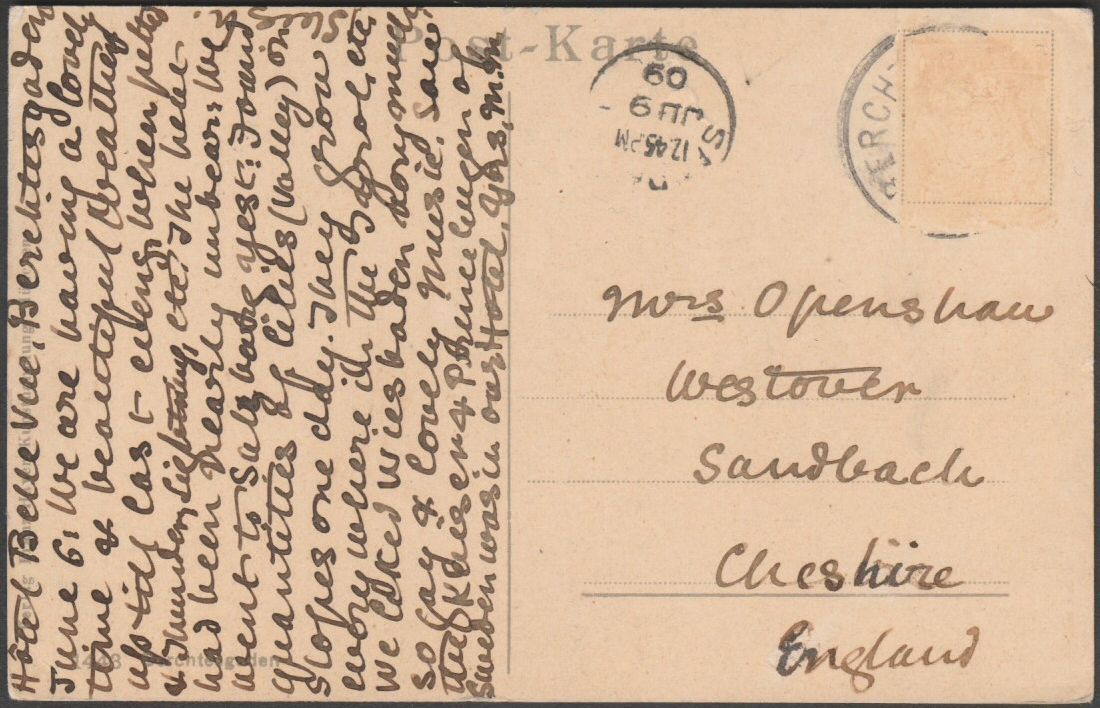 Post-Karte
Hôtel Bellevue, Berchtesgaden
June 6: We are having a lovely
time & beautiful weather
up till last evening when pelts
& thunder, lightning, etc. The heat
had been nearly unbear: We
went to Salzburg yest: Found
quantities of lilies (Valley) on
slopes one day. They grow
everywhere in the Tyrol, etc
We liked Wiesbaden very much
so gay & lovely music. Saw
the Kaiser & Prince Eugen of
Sweden was in our Hotel. Yrs, M.M
1443 Berchtesgaden
BERCH
12.45 PM
JU 9
09
Mrs Openshaw
Westover
Sandbach
Cheshire
England